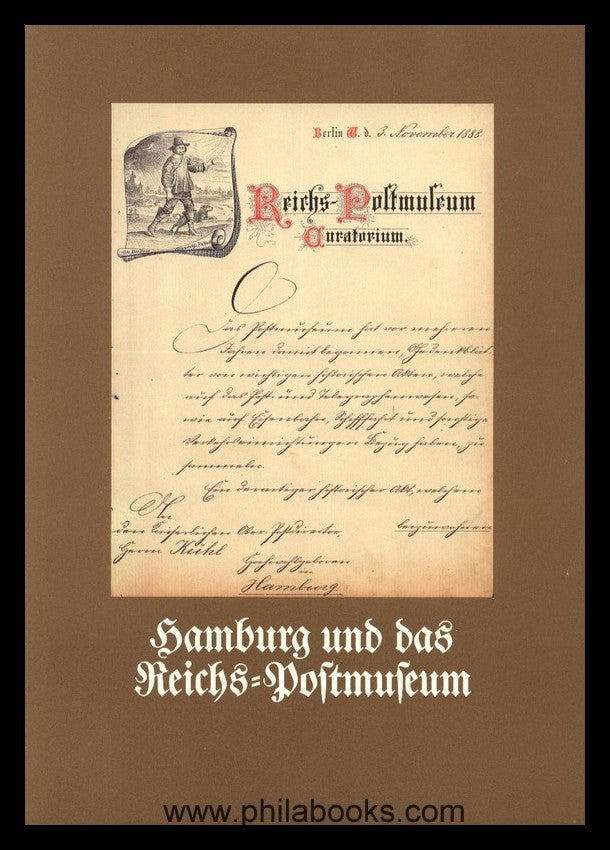 Berlin W. d. 3. November 1888.
Reichs-Postmuseum
Curatorium.
Das Postmuseum hat vor mehreren
Jahren damit begonnen, Gedenkblät-
ter von wichtigen historischen Akten, welche
auf das Post- und Telegraphenwesen, so-
wie auf Eisenbahn, Schifffahrt und sonstige
Verkehrseinrichtungen Bezug haben, zu
sammeln.
Ein derartiger historischer Akt, welchem
beizuwohnen
An
den Kaiserlichen Ober-Postdirector,
Herrn Kühl
Hochwohlgeboren
in
Hamburg
Hamburg und das
Reichs=Postmuseum
www.philabooks.com